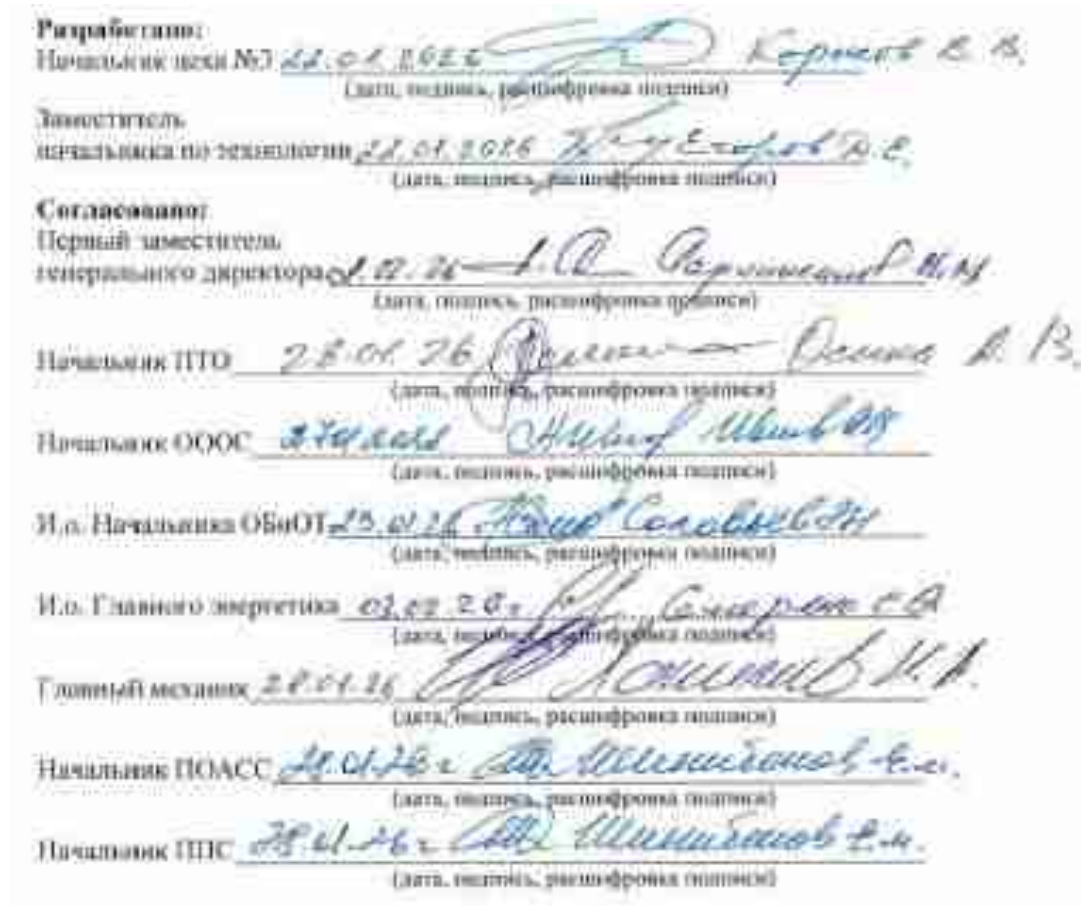 Разработано:
Начальник цеха №3 22.01.2026 В. В.
(дата, подпись, расшифровка подписи)
Заместитель
начальника по технологии 22.01.2026 Егоров Д.Е.
(дата, подпись, расшифровка подписи)
Согласовано:
Первый заместитель
генерального директора
(дата, подпись, расшифровка подписи)
Начальник ПТО 28.01.26 Осина А. В.
(дата, подпись, расшифровка подписи)
Начальник ОООС
(дата, подпись, расшифровка подписи)
И.о. Начальника ОБиОТ Соловьев
(дата, подпись, расшифровка подписи)
И.о. Главного энергетика 02.02.26г
(дата, подпись, расшифровка подписи)
Главный механик 28.01.26
(дата, подпись, расшифровка подписи)
Начальник ПОАСС 28.01.26г Е.м.
(дата, подпись, расшифровка подписи)
Начальник ППС 28.01.26г Е.м.
(дата, подпись, расшифровка подписи)